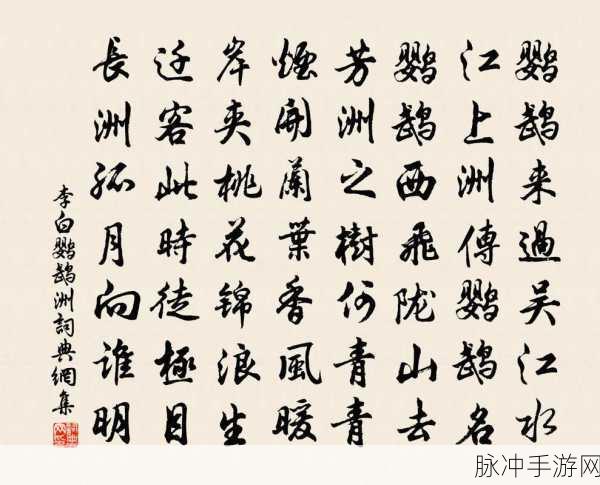 鹦鹉来過吴江水
江上洲傳鹦鹉名
鹦鹉西飛陇山去
芳洲之樹何青青
煙開蘭葉香風暖
岸夹桃花錦浪生
迁客此時徒極目
長洲孤月向誰明
李白鹦鹉洲詞典網集
脉冲手游网